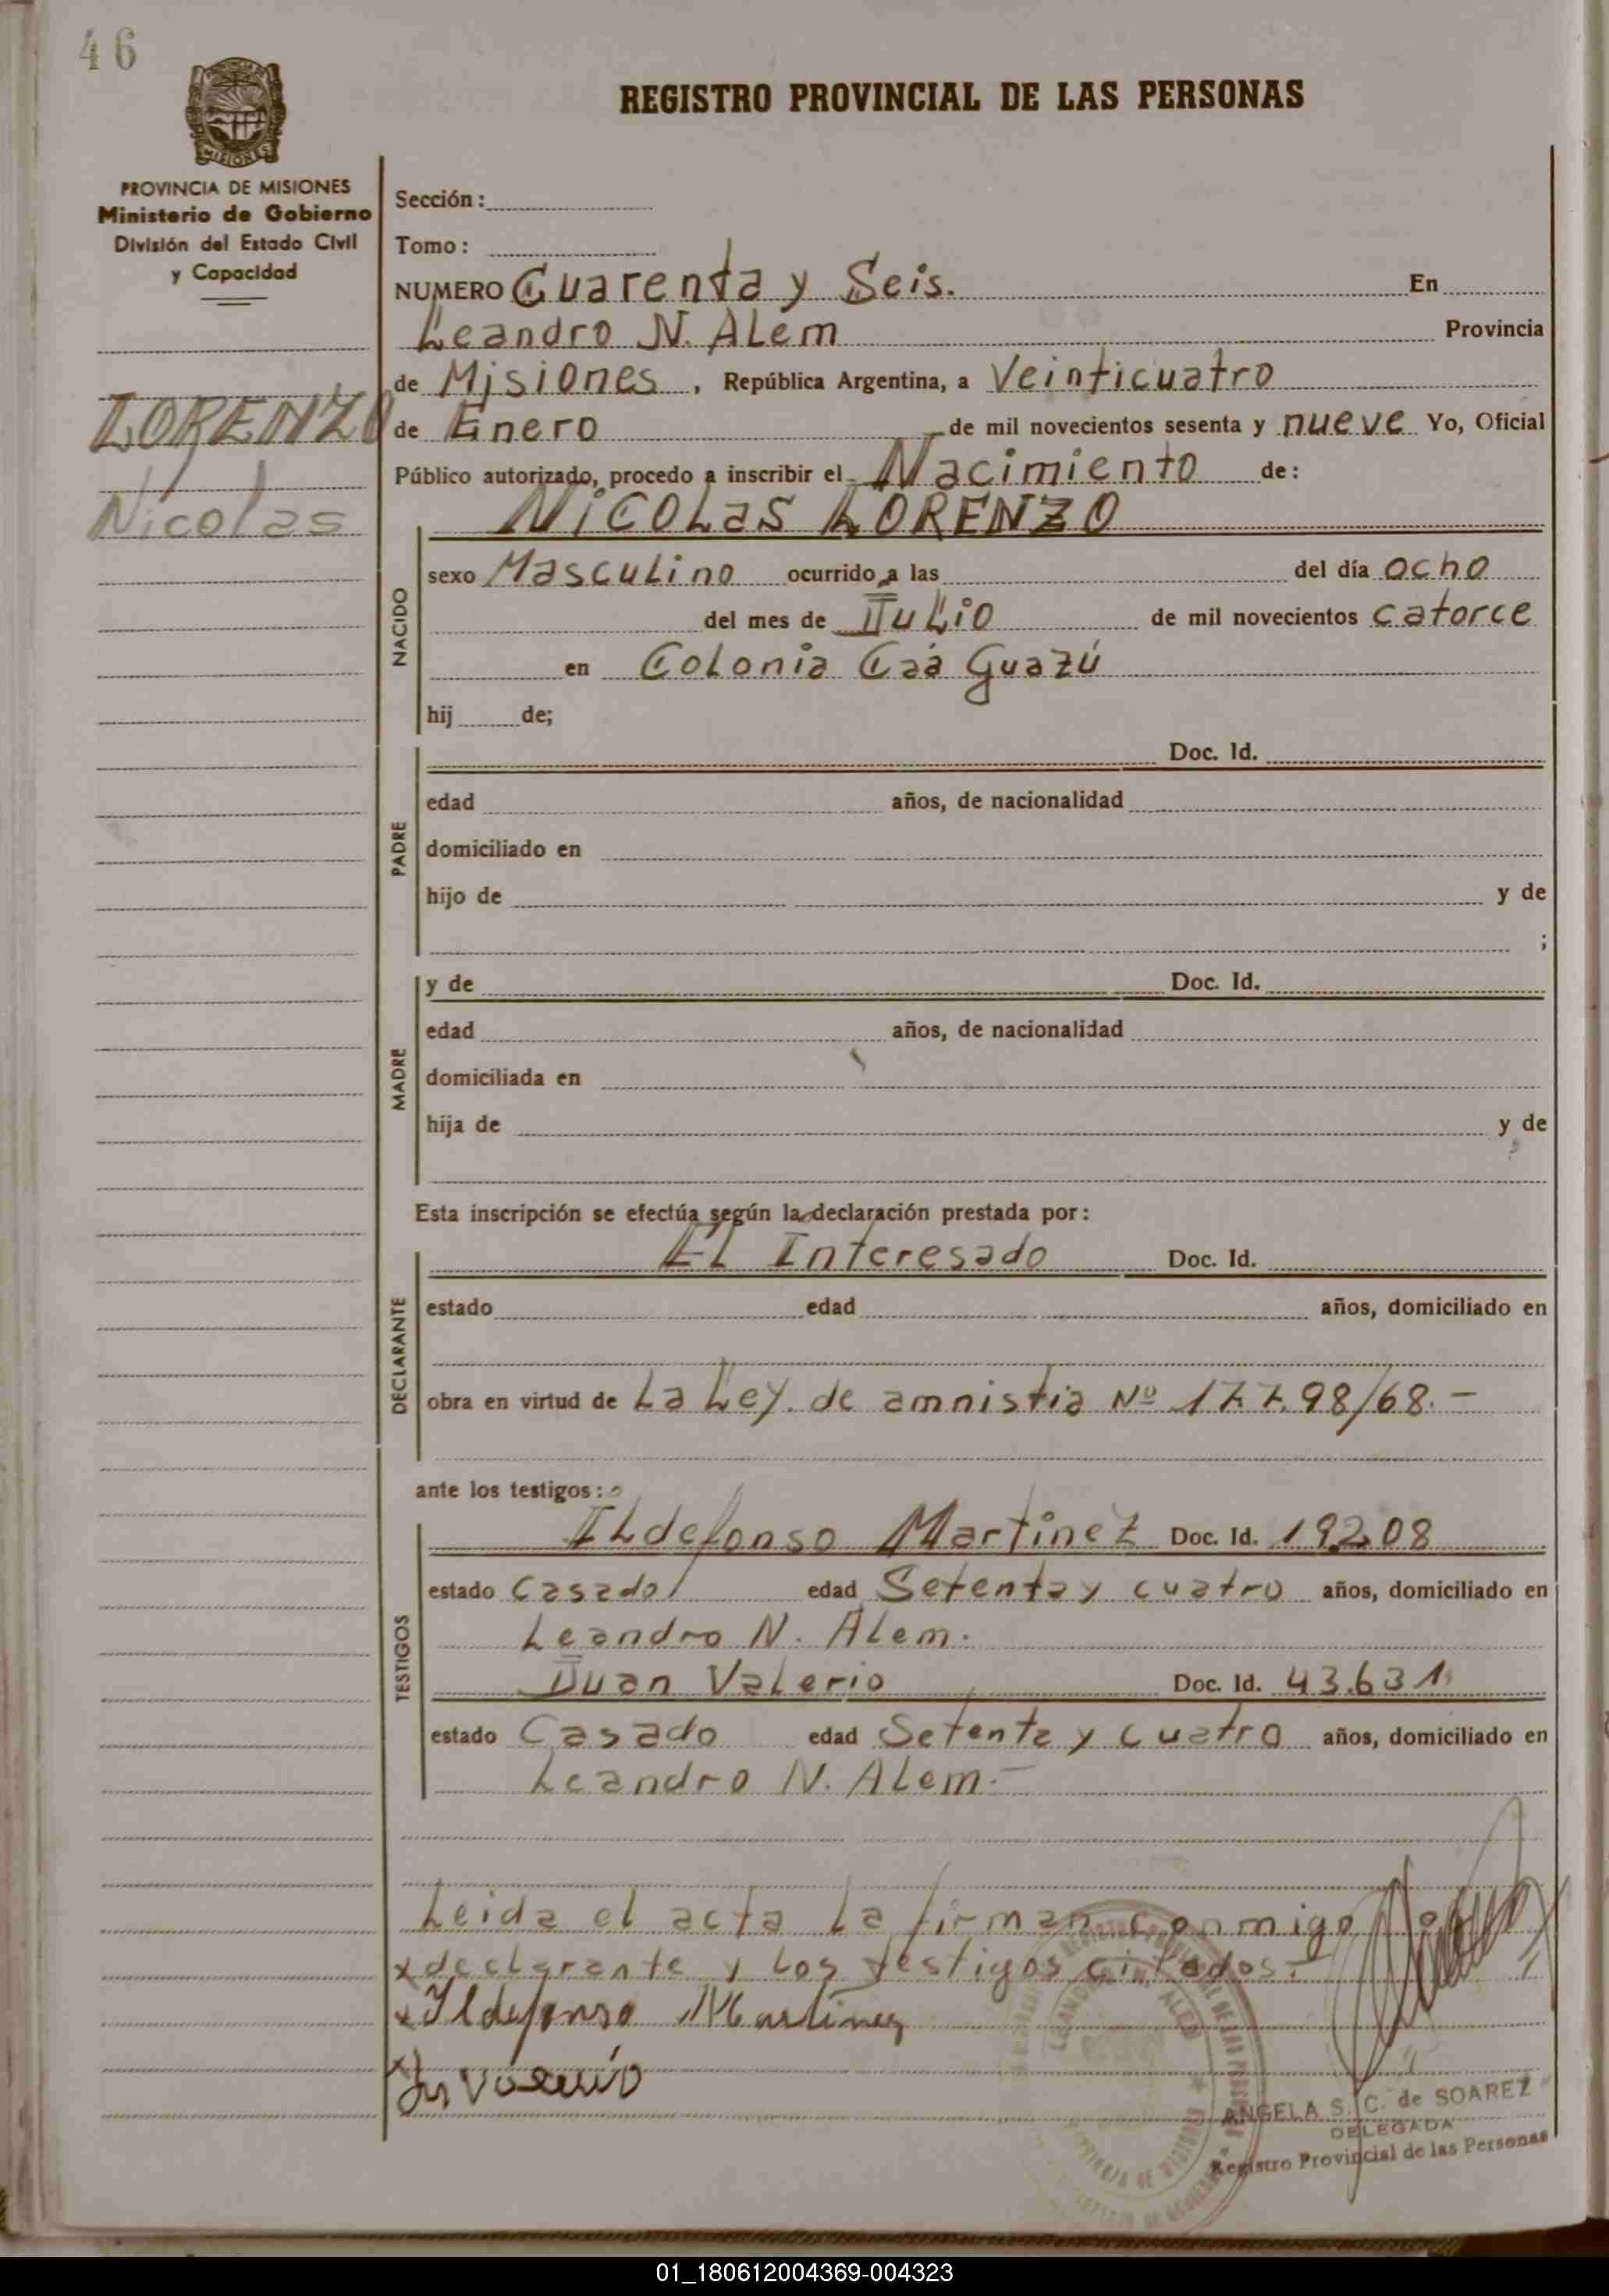 46
REGISTRO PROVINCIAL DE LAS PERSONAS
MISIONES
PROVINCIA DE MISIONES
Ministerio de Gobierno
División del Estado Civil
y Capacidad
LORENZO
Nicolas
Sección:
Tomo:
NUMERO Cuarenta y Seis. En
Leandro N. Alem Provincia
de Misiones, República Argentina, a Veinticuatro
de Enero de mil novecientos sesenta y nueve Yo, Oficial
Público autorizado, procedo a inscribir el Nacimiento de:
NICOLAS LORENZO
NACIDO
sexo Masculino ocurrido a las del día ocho
del mes de Julio de mil novecientos catorce
en Colonia Caá Guazú
hij de;
PADRE
Doc. Id.
edad años, de nacionalidad
domiciliado en
hijo de y de
;
MADRE
y de Doc. Id.
edad años, de nacionalidad
domiciliada en
hija de y de
Esta inscripción se efectúa según la declaración prestada por:
DECLARANTE
El Interesado Doc. Id.
estado edad años, domiciliado en
obra en virtud de La Ley. de amnistia Nº 177.98/68.-
ante los testigos:
TESTIGOS
Ildefonso Martinez Doc. Id. 19208
estado Casado edad Setenta y cuatro años, domiciliado en
Leandro N. Alem.
Juan Valerio Doc. Id. 43.631
estado Casado edad Setenta y cuatro años, domiciliado en
Leandro N. Alem.-
Leida el acta la firman conmigo
x declarante y los testigos citados.
x Ildefonso Martinez
ANGELA S. C. de SOAREZ
DELEGADA
Registro Provincial de las Personas
01_180612004369-004323